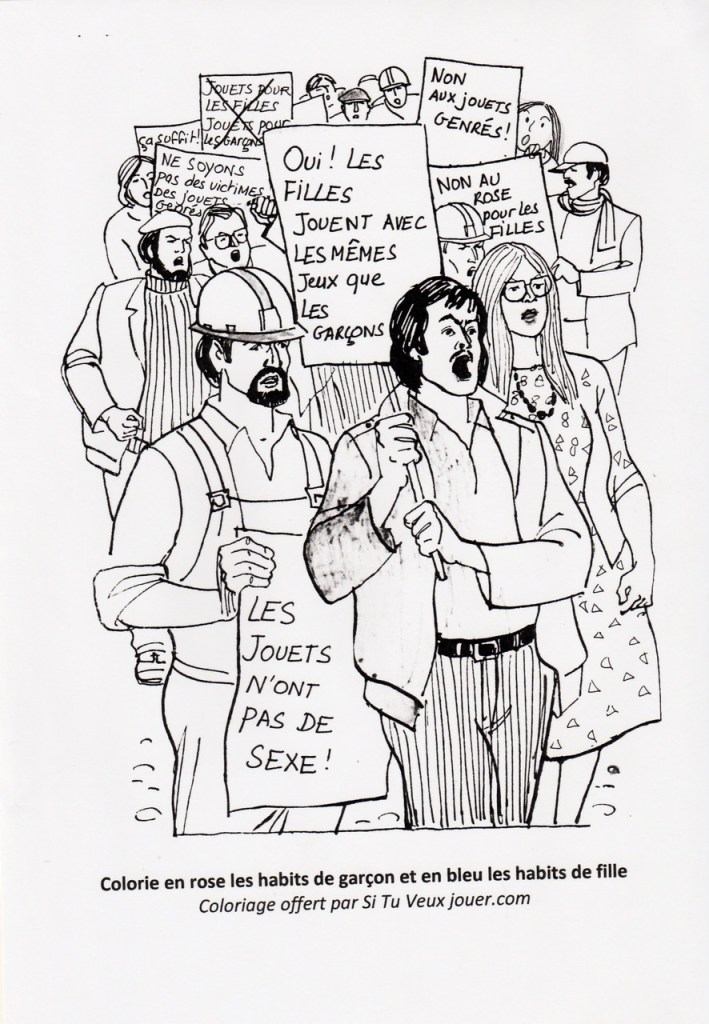 JOUETS POUR
LES FILLES
JOUETS POUR
LES GARÇONS
NON
AUX JOUETS
GENRÉS !
ça suffit !
NE SOYONS
pas des victimes
Des jouets
Genrés
Oui ! LES
FILLES
JOUENT AVEC
LES MÊMES
Jeux que
LES
GARÇONS
NON AU
ROSE
pour les
FILLES
LES
JOUETS
N'ONT
PAS DE
SEXE !
Colorie en rose les habits de garçon et en bleu les habits de fille
Coloriage offert par Si Tu Veux jouer.com